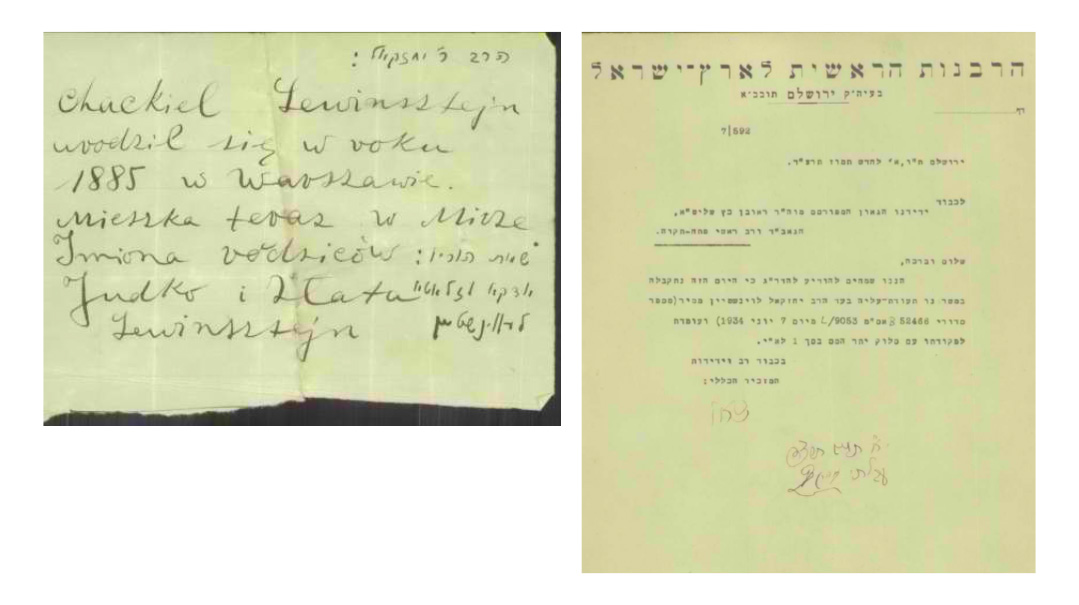 הרב ר' יחזקאל :
Chackiel Lewinsztejn
urodził się w roku
1885 w Warszawie.
Mieszka teraz w Mirze
Imiona rodziców : שמות הוריו
Judko i Złata יודקו וזלאטא
Lewinsztejn לוינשטיין
הרבנות הראשית לארץ־ישראל
בעיה"ק ירושלם תובב"א
דף
7/592
ירושלם ת"ו, א' לחדש תמוז תרצ"ד.
לכבוד
ידידנו הגאון המפורסם מוה"ר ראובן כץ שליט"א,
הגאב"ד ורב ראשי פתח-תקוה.
שלום וברכה,
הננו שמחים להודיע להדר"ג כי היום הזה נתקבלה
במשרדנו תעודת-עליה בעד הרב יחזקאל לוינשטיין ממיר (מספר
סדורי 52466 B אס"מ 9053/L מיום 7 יוני 1934) ועומדת
לפקודתו עם סלוק יתר הסם בסך 1 לא"י.
בכבוד רב וידידות
המזכיר הכללי: